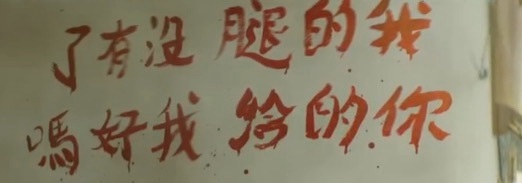 我的腿没有了
你的给我好嗎